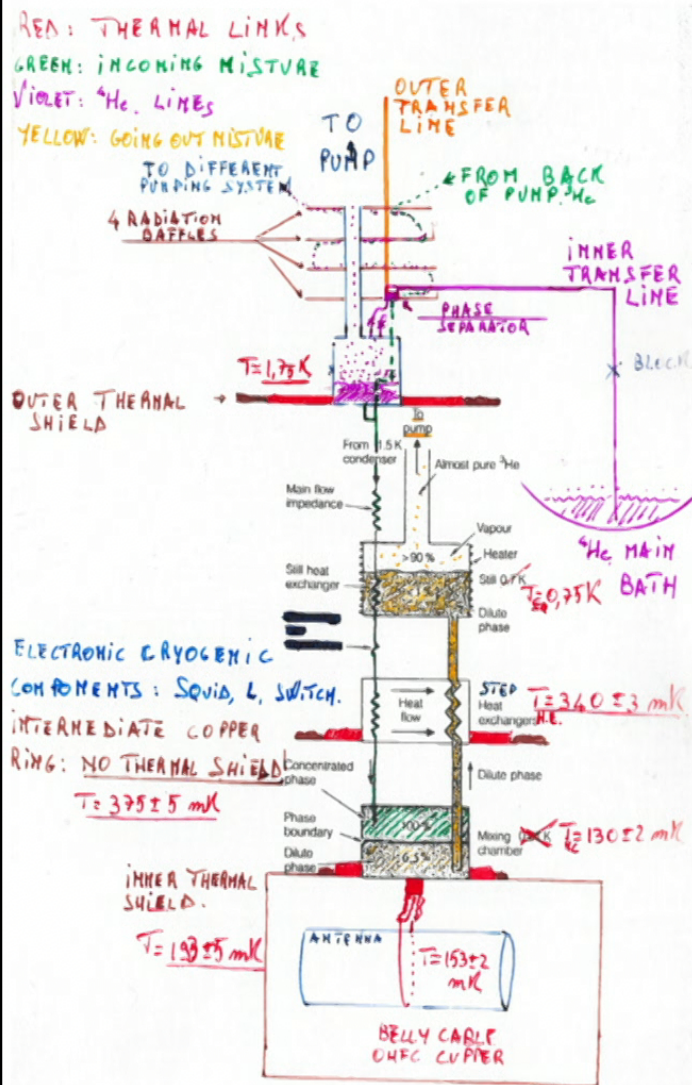 RED: THERMAL LINKS
GREEN: INCOMING MISTURE
VIOLET: ⁴He LINES
YELLOW: GOING OUT MISTURE
OUTER
TRANSFER
LINE
TO
PUMP
TO DIFFERENT
PUMPING SYSTEM
FROM BACK
OF PUMP ³He
4 RADIATION
BAFFLES
INNER
TRANSFER
LINE
PHASE
SEPARATOR
T=1,75K
BLOCK
OUTER THERMAL
SHIELD
To
pump
From 1.5 K
condenser
Almost pure ³He
Main flow
impedance
Vapour
>90 %
Heater
Still heat
exchanger
Still 0.7K
T=0,75K
⁴He MAIN
BATH
Dilute
phase
ELECTRONIC CRYOGENIC
COMPONENTS: SQUID, L, SWITCH.
STEP
Heat
flow
Heat
exchangers
H.E.
T=340±3 mK
INTERMEDIATE COPPER
RING: NO THERMAL SHIELD
T=375±5 mK
Concentrated
phase
Dilute phase
Phase
boundary
Mixing
chamber
T=130±2 mK
Dilute
phase
6.5%
INNER THERMAL
SHIELD.
T=193±5 mK
ANTENNA
T=153±2
mK
BELLY CABLE
OHFC CUPPER